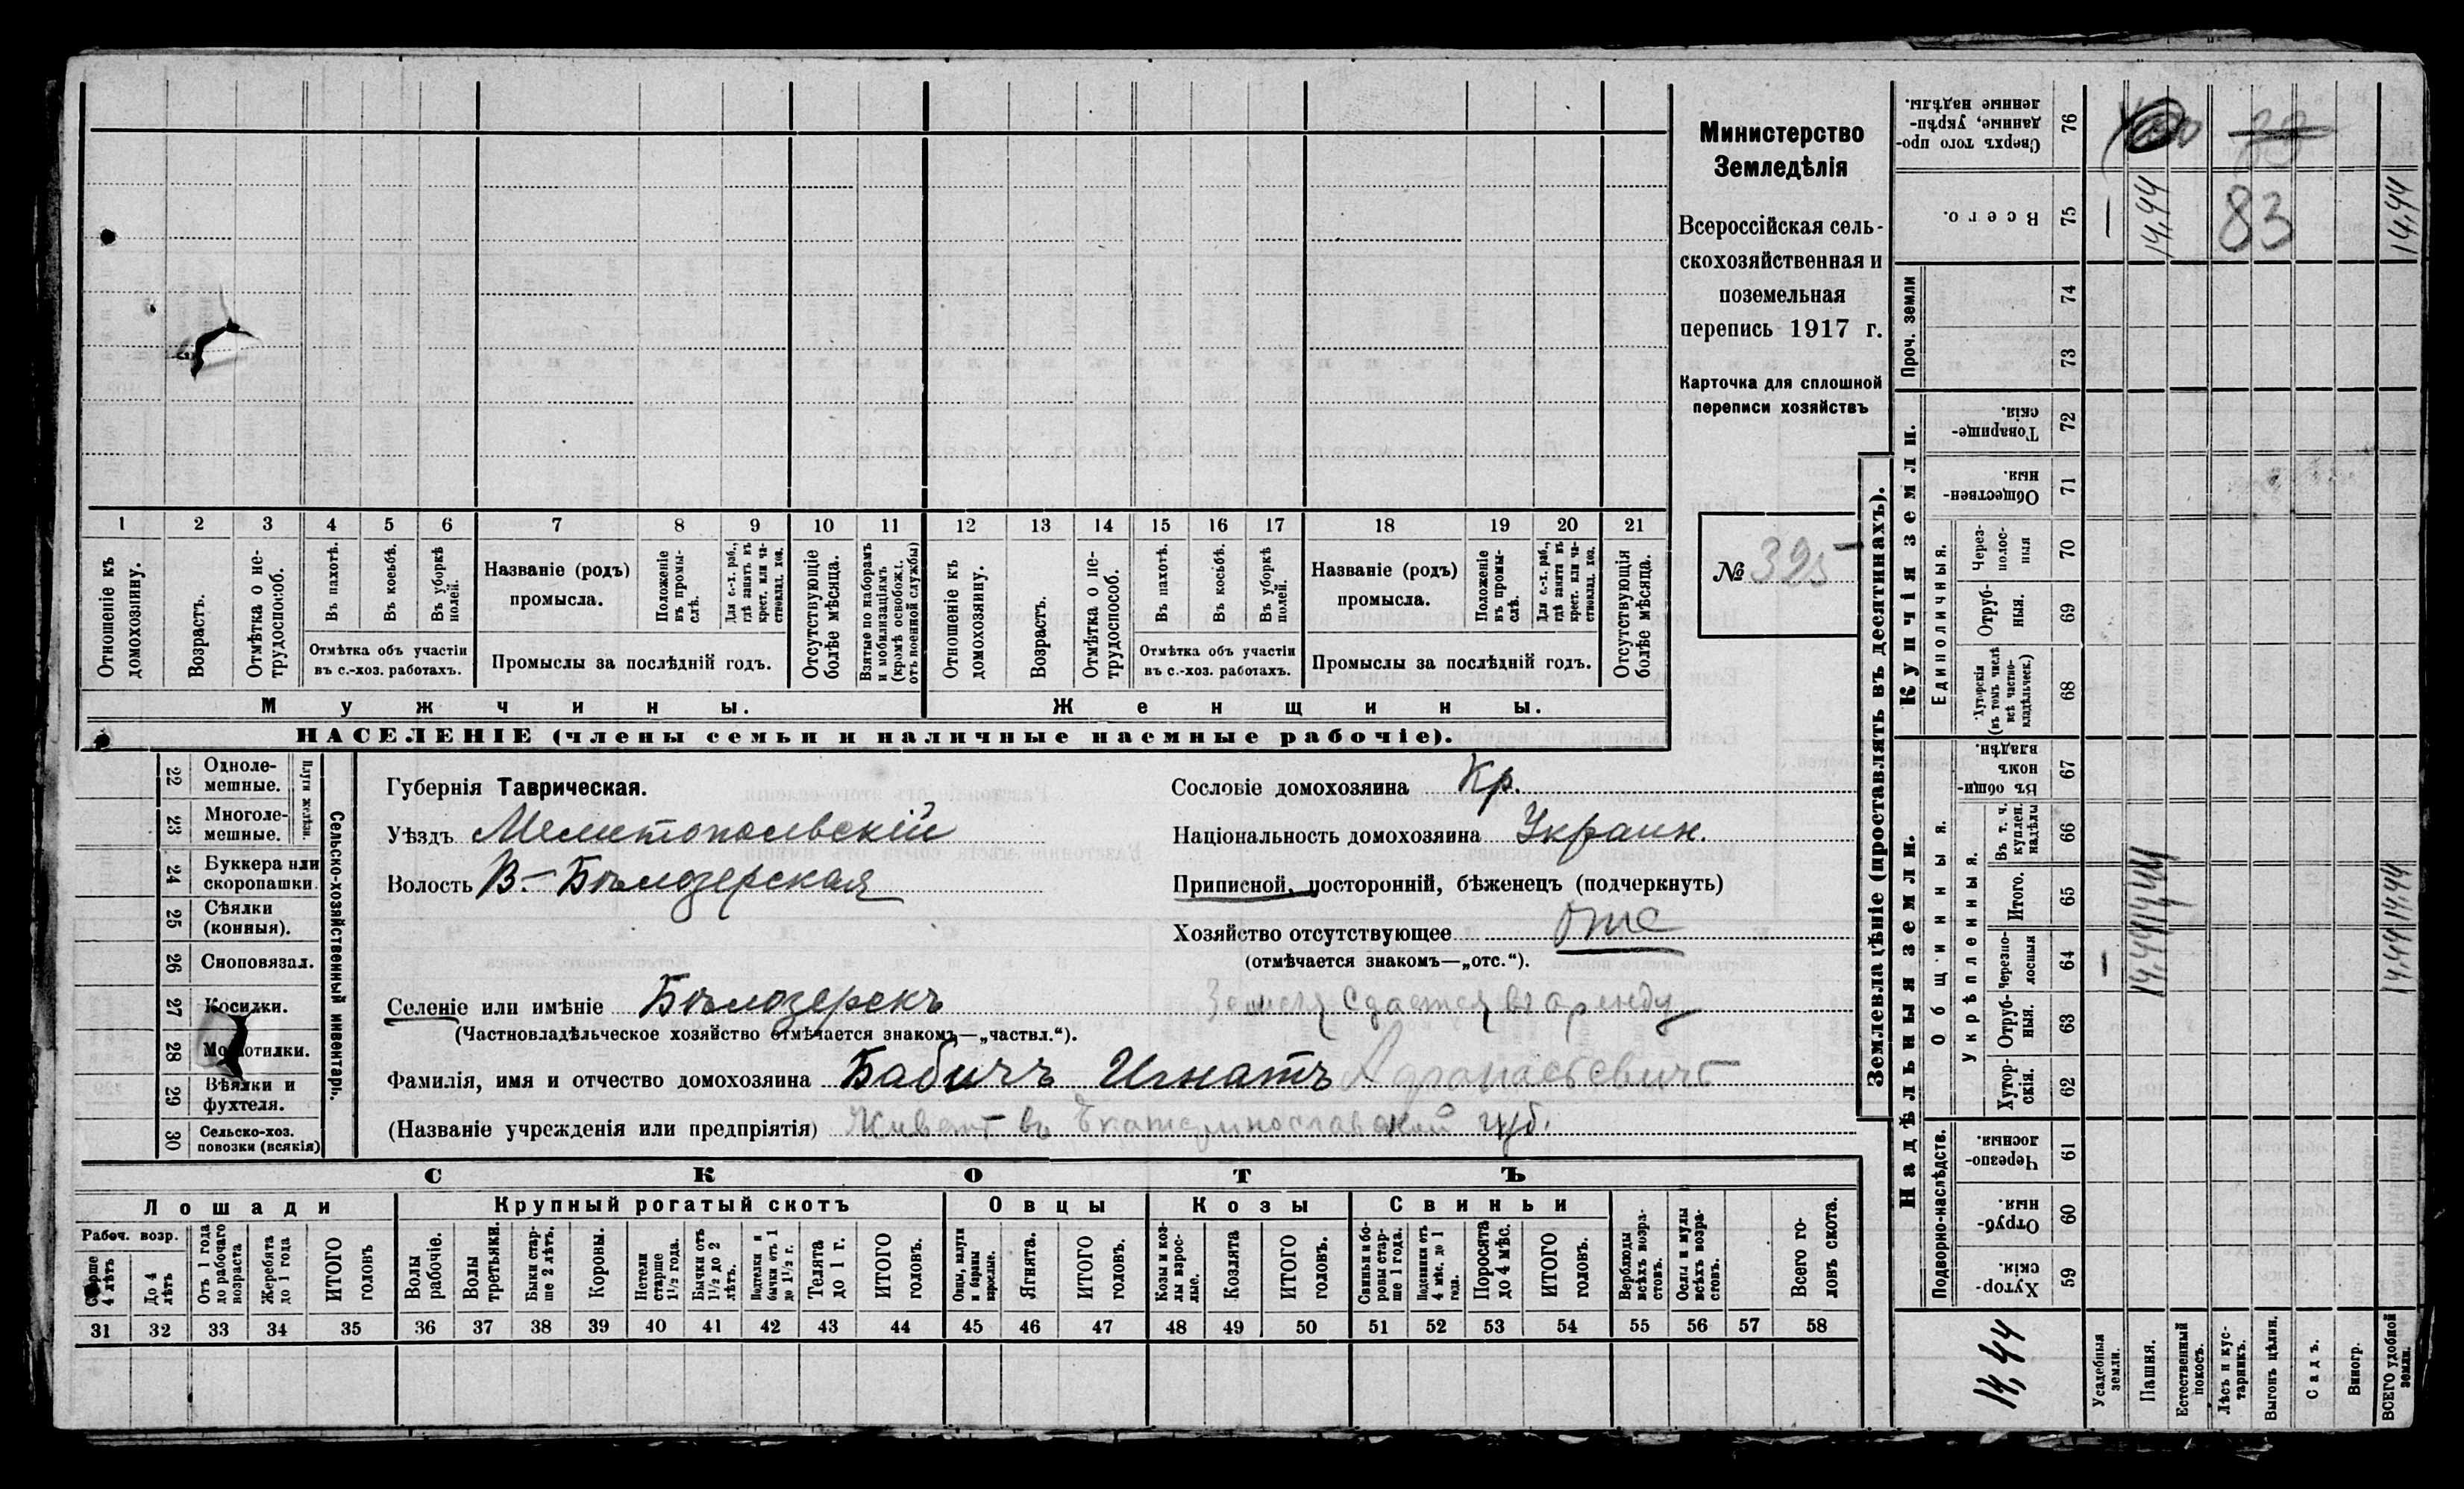 Министерство
Земледѣлія
Всероссійская сель-
скохозяйственная и
поземельная
перепись 1917 г.
Карточка для сплошной
переписи хозяйствъ
№ 395
1 2 3 4 5 6 7 8 9 10 11 12 13 14 15 16 17 18 19 20 21
Отношеніе къ домохозяину.
Возрастъ.
Отмѣтка о не-трудоспособ.
Въ пахотѣ.
Въ косьбѣ.
Въ уборкѣ полей.
Отмѣтка объ участіи
въ с.-хоз. работахъ.
Названіе (родъ)
промысла.
Положеніе въ промы-слѣ.
Для с.-х. раб., гдѣ занятъ въ крест. или ча-стновлад. хоз.
Промыслы за послѣдній годъ.
Отсутствующіе болѣе мѣсяца.
Взятые по наборамъ и мобилизаціямъ (кромѣ освобожд. отъ военной службы)
Отношеніе къ домохозяину.
Возрастъ.
Отмѣтка о не-трудоспособ.
Въ пахотѣ.
Въ косьбѣ.
Въ уборкѣ полей.
Отмѣтка объ участіи
въ с.-хоз. работахъ.
Названіе (родъ)
промысла.
Положеніе въ промы-слѣ.
Для с.-х. раб., гдѣ занята въ крест. или ча-стновлад. хоз.
Промыслы за послѣдній годъ.
Отсутствующія болѣе мѣсяца.
Мужчины.
Женщины.
НАСЕЛЕНІЕ (члены семьи и наличные наемные рабочіе).
22 Одноле-мешные.
23 Многоле-мешные.
Плуги желѣзн.
24 Буккера или скоропашки.
25 Сѣялки (конныя).
26 Сноповязал.
27 Косилки.
28 Молотилки.
29 Вѣялки и фухтеля.
30 Сельско-хоз. повозки (всякія)
Сельско-хозяйственный инвентарь.
Губернія Таврическая.
Уѣздъ Мелитопольскій
Волость В.-Бѣлозерская
Селеніе или имѣніе Бѣлозерскъ
(Частновладѣльческое хозяйство отмѣчается знакомъ—„частвл.“).
Фамилія, имя и отчество домохозяина Бабичъ Игнатъ Афанасьевичъ
(Названіе учрежденія или предпріятія) Живетъ въ Екатеринославской губ.
Сословіе домохозяина Кр.
Національность домохозяина Украин.
Приписной, посторонній, бѣженецъ (подчеркнуть)
Хозяйство отсутствующее отс
(отмѣчается знакомъ—„отс.“).
Земля сдается въ аренду
СКОТЪ
Лошади
Крупный рогатый скотъ
Овцы
Козы
Свиньи
Рабоч. возр.
Старше 4 лѣтъ
До 4 лѣтъ
Отъ 1 года до рабочаго возраста
Жеребята до 1 года
ИТОГО головъ
Волы рабочіе.
Волы третьяки.
Быки стар-ше 2 лѣтъ.
Коровы.
Нетели старше 1½ года.
Бычки отъ 1½ до 2 лѣтъ.
Подтелки и бычки отъ 1 до 1½ г.
Телята до 1 г.
ИТОГО головъ.
Овцы, валухи и бараны взрослые.
Ягнята.
ИТОГО головъ.
Козы и коз-лы взрос-лые.
Козлята
ИТОГО головъ.
Свиньи и бо-ровы стар-ше 1 года.
Подсвинки отъ 4 мѣс. до 1 года.
Поросята до 4 мѣс.
ИТОГО головъ.
Верблюды всѣхъ возра-стовъ.
Ослы и мулы всѣхъ возра-стовъ.
Всего го-ловъ скота.
31 32 33 34 35 36 37 38 39 40 41 42 43 44 45 46 47 48 49 50 51 52 53 54 55 56 57 58
Землевладѣніе (проставлять въ десятинахъ).
Надѣльныя земли.
Купчія земли.
Проч. земли
Подворно-наслѣдств.
Общинныя.
Укрѣпленныя.
Единоличныя.
Хутор-скія. 59
Отруб-ныя. 60
Черезпо-лосныя. 61
Хутор-скія. 62
Отруб-ныя. 63
Черезпо-лосныя 64
Итого. 65
Въ т. ч. куплен. надѣлы 66
Въ общи-номъ владѣн. 67
Хуторскія (въ томъ числѣ всѣ частно-владѣльческ.) 68
Отруб-ныя. 69
Через-полос-ныя 70
Обществен-ныя. 71
Товарище-скія. 72
73
74
Всего. 75
Сверхъ того про-данные, укрѣп-ленные надѣлы. 76
14,44
Усадебныя земли.
Пашня. 14,44 14,44 14,44
Естественный покосъ.
Лѣсъ и кус-тарникъ.
83
Выгонъ цѣлин.
Садъ.
Виногр.
ВСЕГО удобной земли. 14,44 14,44 14,44